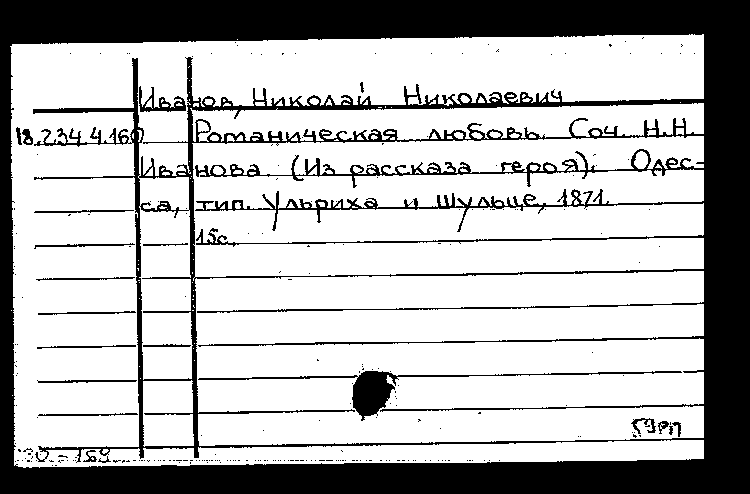 Иванов, Николай Николаевич
18.234.4.160 Романическая любовь. Соч. Н.Н.
Иванова. (Из рассказа героя). Одес-
са, тип. Ульриха и Шульце, 1871.
15с.
59РП
30-169